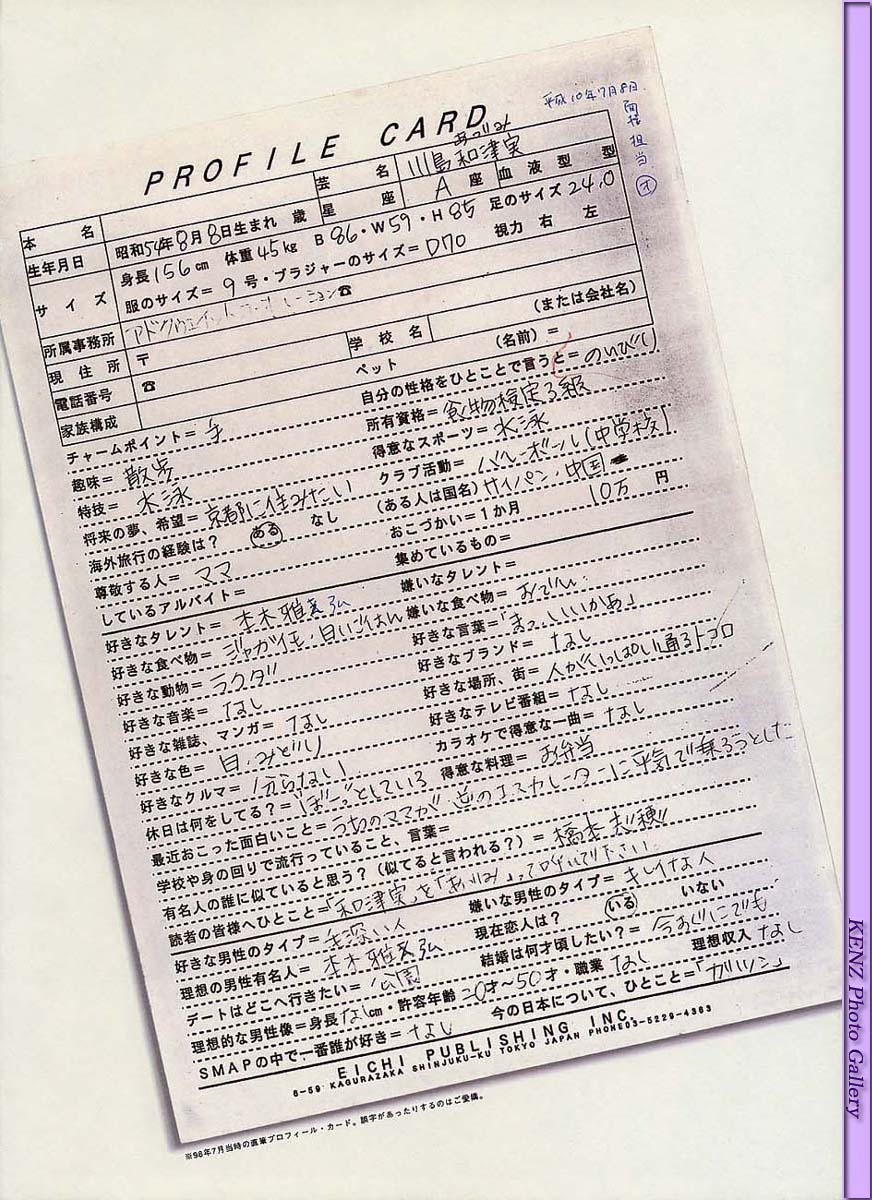 平成10年7月8日
面接担当 オ
PROFILE CARD
あつみ
本名 芸名 川島和津実
生年月日 昭和54年8月8日生まれ 歳 星座 A座 血液型 型
サイズ 身長156cm 体重45kg B86・W59・H85 足のサイズ24.0
服のサイズ=9号・ブラジャーのサイズ=D70 視力 右 左
所属事務所 ☎
現住所 〒 学校名 (または会社名)
電話番号 ☎ ペット (名前)=
家族構成 自分の性格をひとことで言うと=のんびり
チャームポイント=手 所有資格=食物検定3級
趣味=散歩 得意なスポーツ=水泳
特技=水泳 クラブ活動=バレーボール(中学校)
将来の夢、希望=京都に住みたい (ある人は国名)サイパン・中国
海外旅行の経験は? ある なし おこづかい=1か月 10万 円
尊敬する人=ママ 集めているもの=
しているアルバイト= 嫌いなタレント=
好きなタレント=本木雅弘 嫌いな食べ物=おでん
好きな食べ物=ジャガイモ・白いごはん 好きな言葉=「まっ、いいかぁ」
好きな動物=ラクダ 好きなブランド=なし
好きな音楽=なし 好きな場所、街=人がいっぱい通るトコロ
好きな雑誌、マンガ=なし 好きなテレビ番組=なし
好きな色=白・みどり カラオケで得意な一曲=なし
好きなクルマ=分らない 得意な料理=お弁当
休日は何をしてる?="ぼーっ"としている
最近おこった面白いこと=うちのママが逆のエスカレーターに平気で乗ろうとした
学校や身の回りで流行っていること、言葉=
有名人の誰に似ていると思う?(似てると言われる?)=橋本志穂
読者の皆様へひとこと=「和津実」を「あつみ」って呼んで下さい
好きな男性のタイプ=毛深い人 嫌いな男性のタイプ=キレイな人
理想の男性有名人=本木雅弘 現在恋人は? いる いない
デートはどこへ行きたい=公園 結婚は何才頃したい?=今すぐにでも
理想的な男性像=身長なしcm・許容年齢20才〜50才・職業なし 理想収入なし
SMAPの中で一番誰が好き=なし 今の日本について、ひとこと=「ガハッシ」
EICHI PUBLISHING INC.
6-59 KAGURAZAKA SHINJUKU-KU TOKYO JAPAN PHONE03-5229-4363
※98年7月当時の直筆プロフィール・カード。誤字があったりするのはご愛嬌。
KENZ Photo Gallery